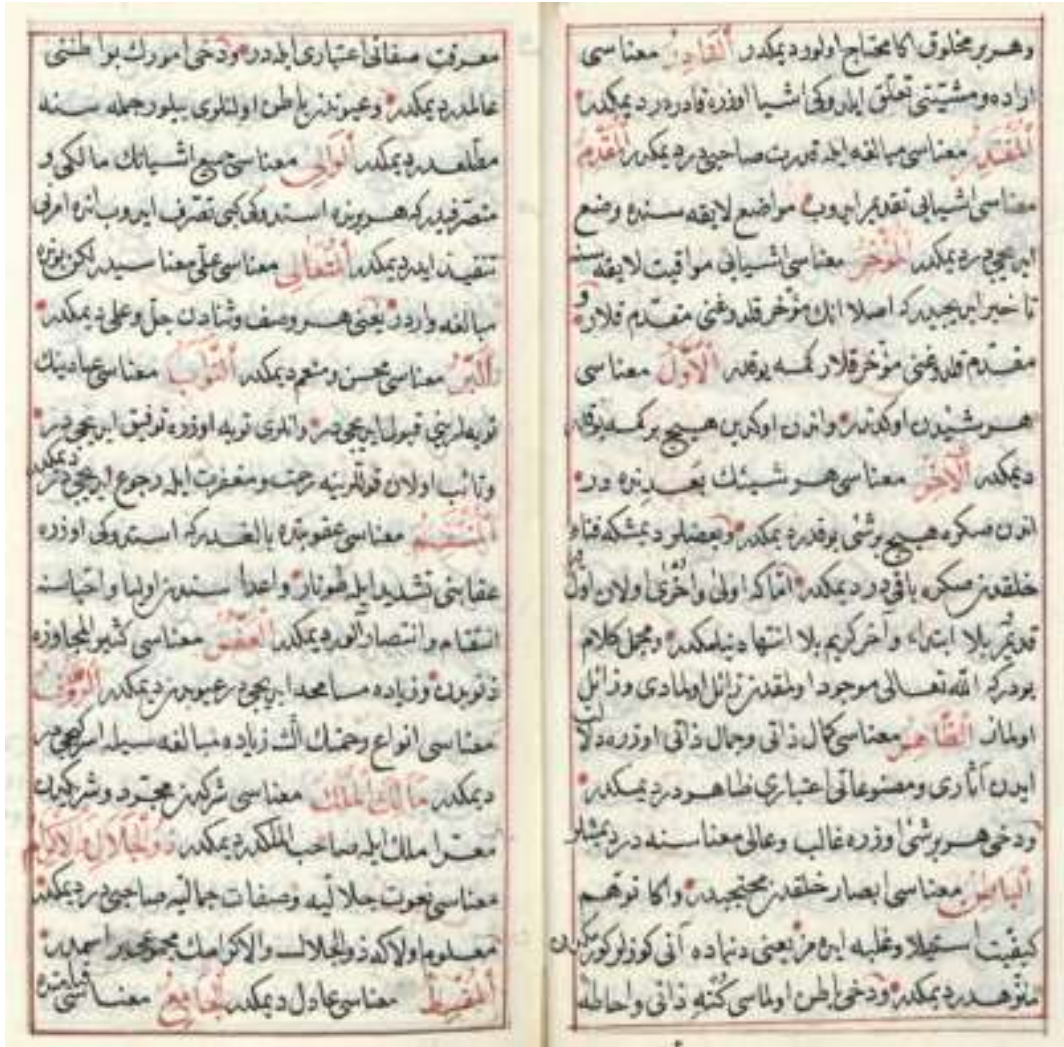 وهر بر مخلوق اكا محتاج اولور ديمكدر اَلْقَادِرُ معناسى
اراده ومشيتى تعلق ايلدوكى اشيا اوزره قادردر ديمكدر
اَلْمُقْتَدِرُ معناسى مبالغه ايله قدرت صاحبى در ديمكدر اَلْمُقَدِّمُ
معناسى اشيايى تقديم ايدوب مواضع لايقه سنده وضع
ايديجى در ديمكدر اَلْمُؤَخِّرُ معناسى اشيايى مواقيت لايقه سنه
تاخير ايديجيدركه اصلا انك مؤخر قلدوغنى مقدم قلار و
مقدم قلدوغنى مؤخر قلار كمسه يوقدر اَلْاَوَّلُ معناسى
هر شيئدن اوكدندر واندن اوكدين هيچ بر كمسه يوقدر
ديمكدر اَلْاٰخِرُ معناسى هر شيئك بعدنده در
اندن صكره هيچ برشئ يوقدر ديمكدر وبعضلر ديمشكه فناء
خلقدن صكره باقى در ديمكدر اما كه اولى واخرى اولان اول
قديم بلا ابتداء واخر كريم بلا انتها دينلمكدر ومجمل كلام
بودركه الله تعالى موجود اولمقدن زائل اولمادى وزائل
اولماز اَلظَّاهِرُ معناسى كمال ذاتى وجمال ذاتى اوزره دلالت
ايدن آثارى ومصنوعاتى اعتبارى ظاهردر ديمكدر
ودخى هر برشئ اوزره غالب وعالى معناسنه در ديمشلر
اَلْبَاطِنُ معناسى ابصار خلقدن محتجبدر واكا توهم
كيفيت استيلا وغلبه ايده مز يعنى دنياده آنى كوزلر كورمكدن
منزهدر ديمكدر ودخى باطن اولماسى كنه ذاتى واحاطه
معرفت صفاتى اعتبارى ايله در ودخى امورك بواطننى
عالمدر ديمكدر وعيوندن باطن اولنلرى بيلور جمله سنه
مطلعدر ديمكدر اَلْوَالِى معناسى جميع اشيانك مالكى و
متصرفيدركه هر برنده استدوكى كبى تصرف ايدوب انده امرنى
تنفيذ ايدر ديمكدر اَلْمُتَعَالِى معناسى على معناسيدر لكن بونده
مبالغه واردر يعنى هر وصف وثنادن جل وعلى ديمكدر
اَلْبَرُّ معناسى محسن ومنعم ديمكدر اَلتَّوَّابُ معناسى عبادينك
توبه لرينى قبول ايديجى در وانلرى توبه اوزره توفيق ايديجى در
وتائب اولان قوللرينه رحمت ومغفرت ايله رجوع ايديجى در ديمكدر
اَلْمُنْتَقِمُ معناسى عقوبتده بالغدركه استدوكى اوزره
عقابنى تشديد ايله طوتار واعداسندن اوليا واحباسنه
انتقام وانتصار آلور ديمكدر اَلْعَفُوُّ معناسى كثير المجاوزه
ذنوبدن وزياده مسامحه ايديجى در عيوبدن ديمكدر اَلرَّؤُفُ
معناسى انواع رحمتك اك زياده مبالغه سيله اسركيجى در
ديمكدر مَالِكُ الْمُلْكِ معناسى شركدن مجرد وشريكدن
معرا ملك ايله صاحب الملكدر ديمكدر ذُو الْجَلَالِ وَالْاِكْرَامِ
معناسى نعوت جلاليه وصفات جماليه صاحبى در ديمكدر
معلوم اولاكه ذو الجلال والاكرامك مجموعى بر اسمدر
اَلْمُقْسِطُ معناسى عادل ديمكدر اَلْجَامِعُ معناسى